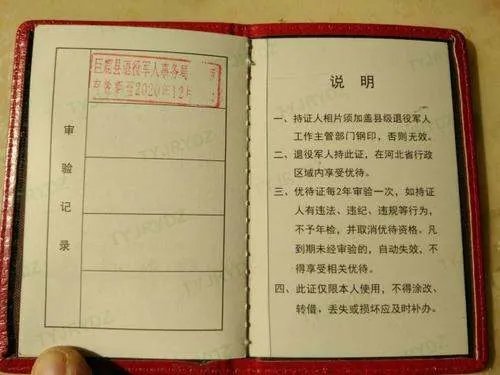 审验记录
巨鹿县退役军人事务局
至2020年12月
说明
一、持证人相片须加盖县级退役军人
工作主管部门钢印，否则无效。
二、退役军人持此证，在河北省行政
区域内享受优待。
三、优待证每2年审验一次，如持证
人有违法、违纪、违规等行为，
不予年检，并取消优待资格。凡
到期未经审验的，自动失效，不
得享受相关优待。
四、此证仅限本人使用，不得涂改、
转借，丢失或损坏应及时补办。